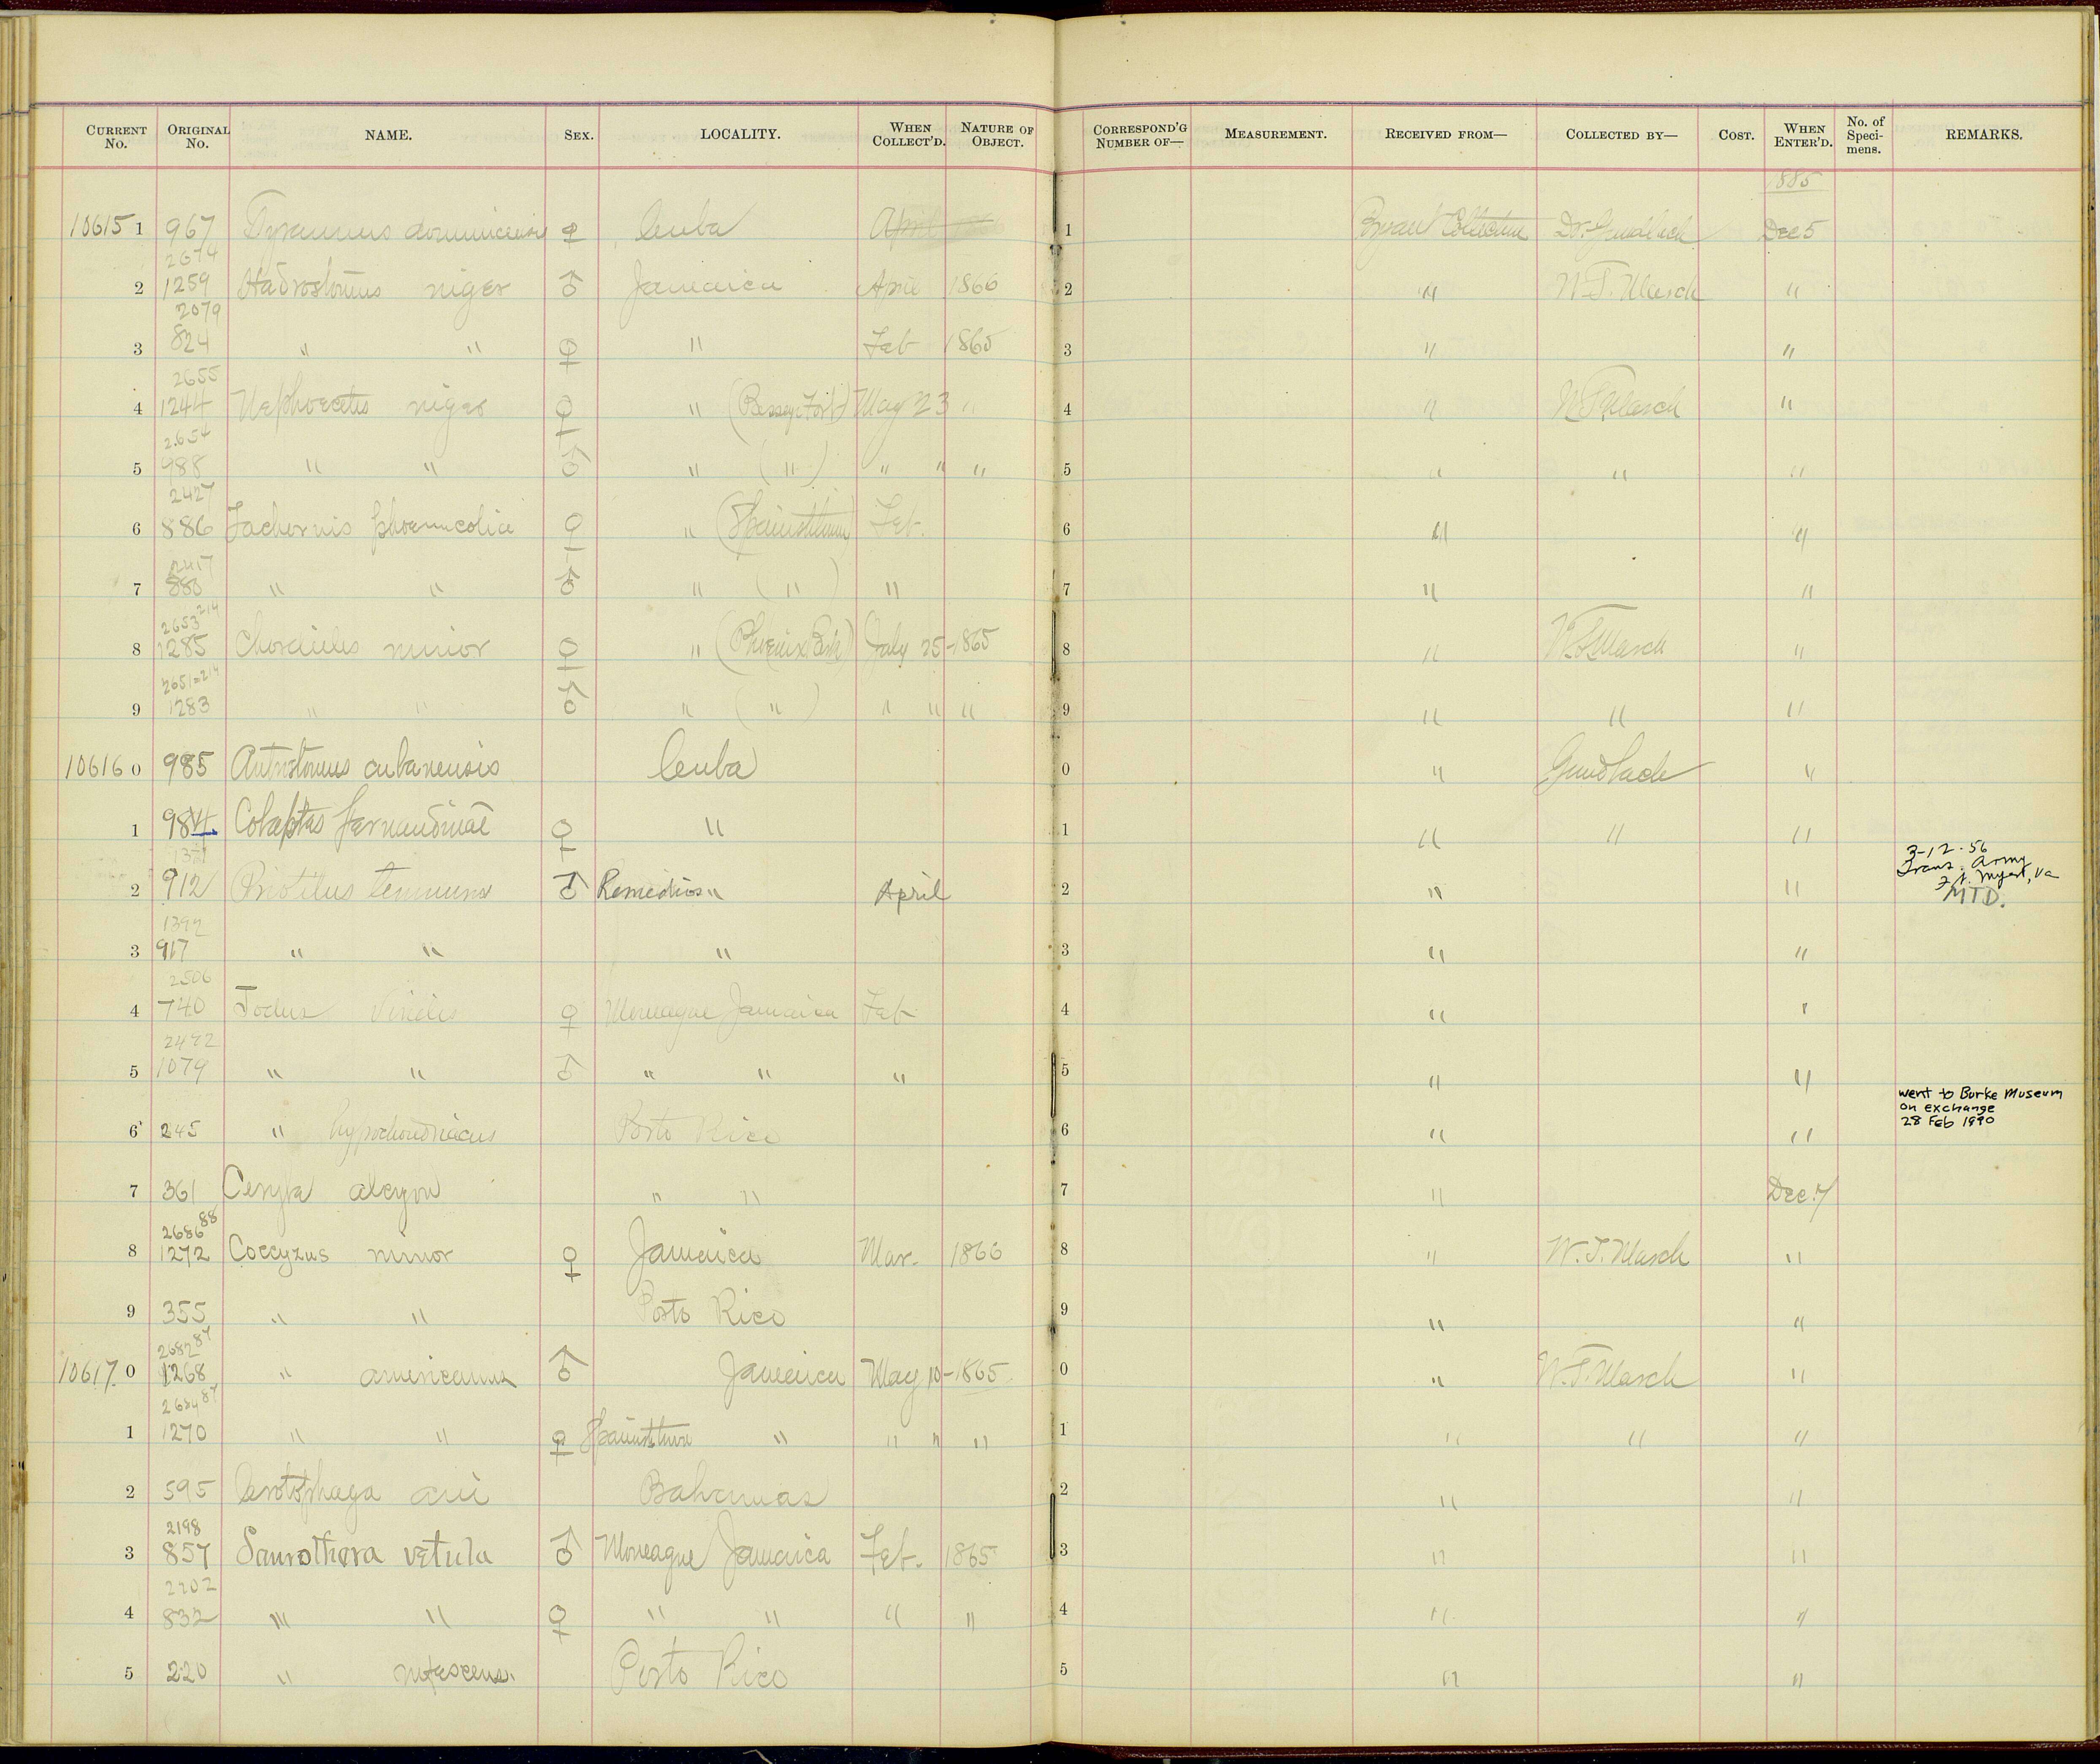 CURRENT No. ORIGINAL No. NAME. SEX. LOCALITY. WHEN COLLECT'D. NATURE OF OBJECT. CORRESPOND'G NUMBER OF— MEASUREMENT. RECEIVED FROM— COLLECTED BY— COST. WHEN ENTER'D. No. of Speci-mens. REMARKS.
1885
10615 1 967 Tyrannus dominicensis ♀ Cuba April 1 Bryant Collection Dr. Gundlach Dec 5
2674
2 1259 Hadrostomus niger ♂ Jamaica April 1866 2 " W. T. March "
2079
3 824 " " ♀ " Feb 1865 3 " "
2655
4 1244 Nephoecetes niger ♀ " ( ) May 23 " 4 " W T March "
2654
5 988 " " ♂ " ( " ) " " " 5 " " "
2427
6 886 Tachornis phoenicobia ♀ " (Spanishtown) Feb. 6 " "
2417
7 880 " " ♂ " ( " ) " 7 " "
2653 214
8 1285 Chordeiles minor ♀ " (Phoenix Park) July 25-1865 8 " W. T. March "
2651 214
9 1283 " " ♂ " ( " ) " " " 9 " " "
10616 0 985 Antrostomus cubanensis Cuba 0 " Gundlach "
1 984 Colaptes fernandinae ♀ " 1 " " "
3-12-56
Trans. Army
Ft. Myer, Va
MTD.
2 912 Priotelus temnurus ♂ Remedios " April 2 " "
1392
3 917 " " " 3 " "
2506
4 740 Todus viridis ♀ Moneague Jamaica Feb 4 " "
2472
5 1079 " " ♂ " " " 5 " "
went to Burke Museum
on exchange
28 Feb 1990
6 245 " hypochondriacus Porto Rico 6 " "
7 361 Ceryle alcyon " " 7 " Dec. 7
2686 88
8 1272 Coccyzus minor ♀ Jamaica Mar. 1866 8 " W. T. March "
9 355 " " Porto Rico 9 " "
2682 87
10617 0 1268 " americanus ♂ Jamaica May 10-1865 0 " W. T. March "
2684 87
1 1270 " " ♀ Spanishtown " " " " 1 " " "
2 595 Crotophaga ani Bahamas 2 " "
2198
3 857 Saurothera vetula ♂ Moneague Jamaica Feb. 1865 3 " "
2202
4 832 " " ♀ " " " " 4 " "
5 220 " rufescens. Porto Rico 5 " "